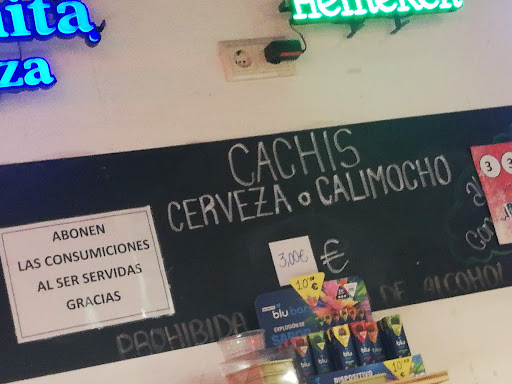 Heineken
za
CACHIS
CERVEZA o CALIMOCHO
ABONEN
LAS CONSUMICIONES
AL SER SERVIDAS
GRACIAS
3,00€ €
10
blu bar
EXPLOSIÓN DE
SABOR
blu
PROHIBIDA
DE ALCOHOL
DISPOSITIVO
3